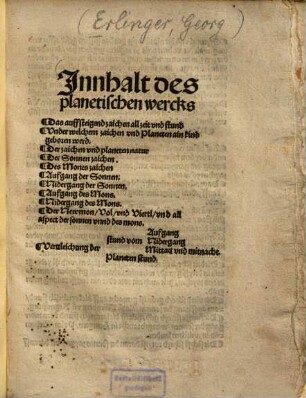 (Erlinger, Georg)
Jnnhalt des
planetischen wercks
¶Das auffsteigend zaichen all zeit vnd stund
¶Vnder welchem zaichen vnd Planeten ain kind
geboren werd.
¶Der zaichen vnd planeten natur
¶Der Sonnen zaichen.
¶Des Mones zaichen
¶Aufgang der Sonnen.
¶Nidergang der Sonnen.
¶Aufgang des Mons.
¶Nidergang des Mons.
¶Der Newmon/Vol/vnd Viertl/vnd all
aspect der sonnen vnnd des mons.
Aufgang
stund vom Nidergang
¶Vergleichung der Mittag vnd mitnacht.
Planeten stund.